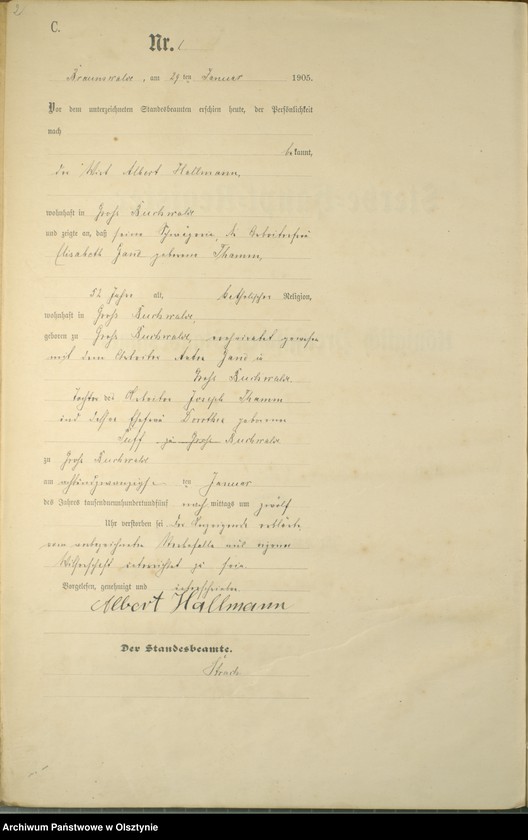 2
C.
Nr. 1
Braunswalde, am 29 ten Januar 1905.
Vor dem unterzeichneten Standesbeamten erschien heute, der Persönlichkeit
nach
bekannt,
der Wirt Albert Hallmann,
wohnhaft in Groß Buchwalde
und zeigte an, daß seine Schwägerin, die Arbeiterfrau
Elisabeth geborene Thamm,
52 Jahre alt, katholischer Religion,
wohnhaft in Groß Buchwalde,
geboren zu Groß Buchwalde, verheiratet gewesen
mit dem Arbeiter
Groß Buchwalde
Tochter des Arbeiter Joseph Thamm
und dessen Ehefrau Dorothea geborenen
zu Groß Buchwalde
zu Groß Buchwalde
am achtundzwanzigsten Januar
des Jahres tausendneunhundertundfünf nach mittags um zwölf
Uhr verstorben sei Der Anzeigende erklärte,
vom Sterbefalle aus eigener
Wissenschaft unterrichtet zu sein.
Vorgelesen, genehmigt und unterschrieben
Albert Hallmann
Der Standesbeamte.
Archiwum Państwowe w Olsztynie